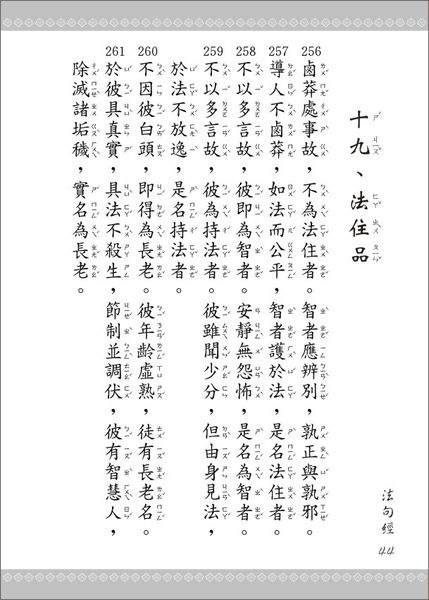 十九、法住品
256 鹵莽處事故，不為法住者。智者應辨別，孰正與孰邪。
257 導人不鹵莽，如法而公平，智者護於法，是名法住者。
258 不以多言故，彼即為智者。安靜無怨怖，是名為智者。
259 不以多言故，彼為持法者。彼雖聞少分，但由身見法，
於法不放逸，是名持法者。
260 不因彼白頭，即得為長老。彼年齡虛熟，徒有長老名。
261 於彼具真實，具法不殺生，節制並調伏，彼有智慧人，
除滅諸垢穢，實名為長老。
法句經 44